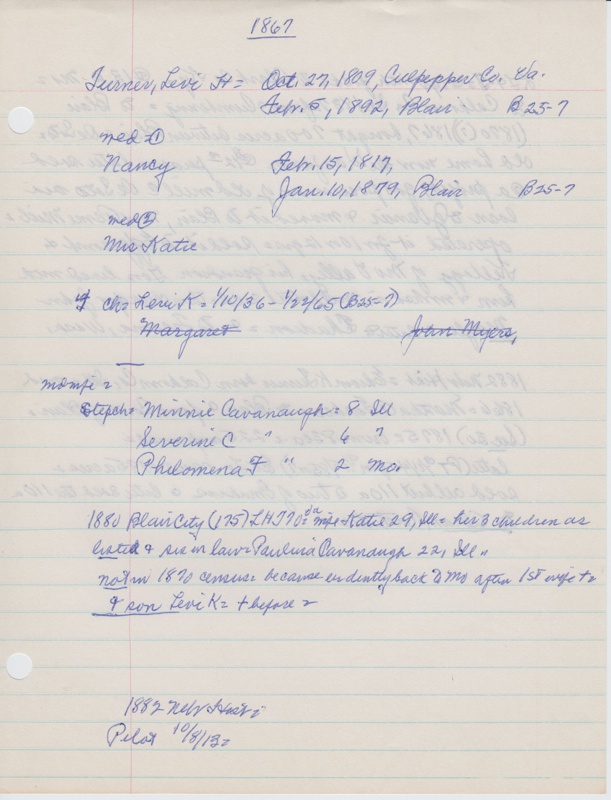 1867
Turner, Levi H = Oct. 27, 1809, Culpepper Co. Va.
Febr. 5, 1892, Blair B 25-7
med = ①
Nancy Febr. 15, 1817,
Jan. 10, 1879, Blair B25-7
med ②
Mrs Katie
ch = Levi K = 1/10/36 - 1/22/65 (B25-7)
Margaret John Myers,
Stepch = Minnie Cavanaugh = 8 Ill
Severine C " 6 "
Philomena F " 2 Mo.
1880 Blair City (175) L H T 70 = Katie 29, Ill = her 3 children as
listed & sis in law = Paulina Cavanaugh 22, Ill =
not in 1870 census = because evidently back to Mo after 1st wife +
& son Levi K = + before =
1882 Nebr Hist =
Pilot 10/8/13 =